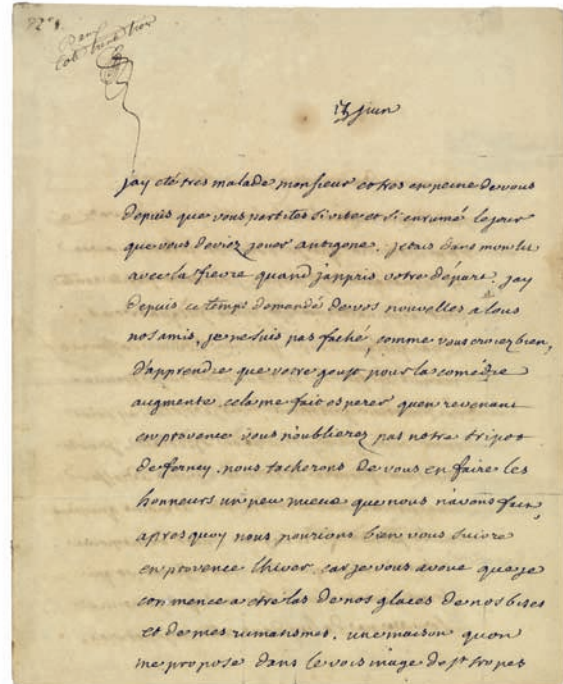 13 juin
jay été tres malade monsieur et tres en peine de vous
depuis que vous partites si viste et si enrumé le jour
que vous deviez jouer antigone. jetais dans mon lit
avec la fievre quand jappris votre départ. jay
depuis ce temps demandé de vos nouvelles a tous
nos amis, je ne suis pas faché, comme vous croiez bien,
d'apprendre que votre goust pour la comédie
augmente. cela me fait esperer quen revenant
en provence vous n'oublierez pas notre tripot
de ferney. nous tacherons de vous en faire les
honneurs un peu mieux que nous n'avons fait,
apres quoy nous pourions bien vous suivre
en provence lhiver. car je vous avoue que je
commence a etre las de nos glaces de nos bises
et de mes rumatismes. une maison quon
me propose dans le voisinage de st tropes